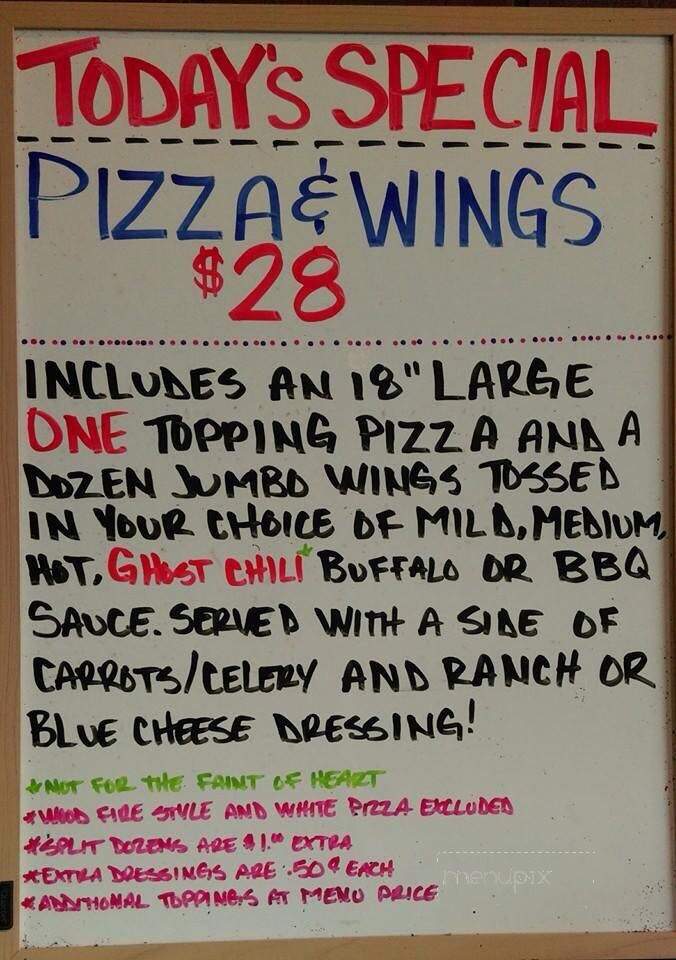 TODAY'S SPECIAL
PIZZA & WINGS
$28
INCLUDES AN 18" LARGE
ONE TOPPING PIZZA AND A
DOZEN JUMBO WINGS TOSSED
IN YOUR CHOICE OF MILD, MEDIUM,
HOT, GHOST CHILI* BUFFALO OR BBQ
SAUCE. SERVED WITH A SIDE OF
CARROTS/CELERY AND RANCH OR
BLUE CHEESE DRESSING!
*NOT FOR THE FAINT OF HEART
*WOOD FIRE STYLE AND WHITE PIZZA EXCLUDED
*SPLIT DOZENS ARE $1.00 EXTRA
*EXTRA DRESSINGS ARE .50¢ EACH
*ADDITIONAL TOPPINGS AT MENU PRICE
menupix